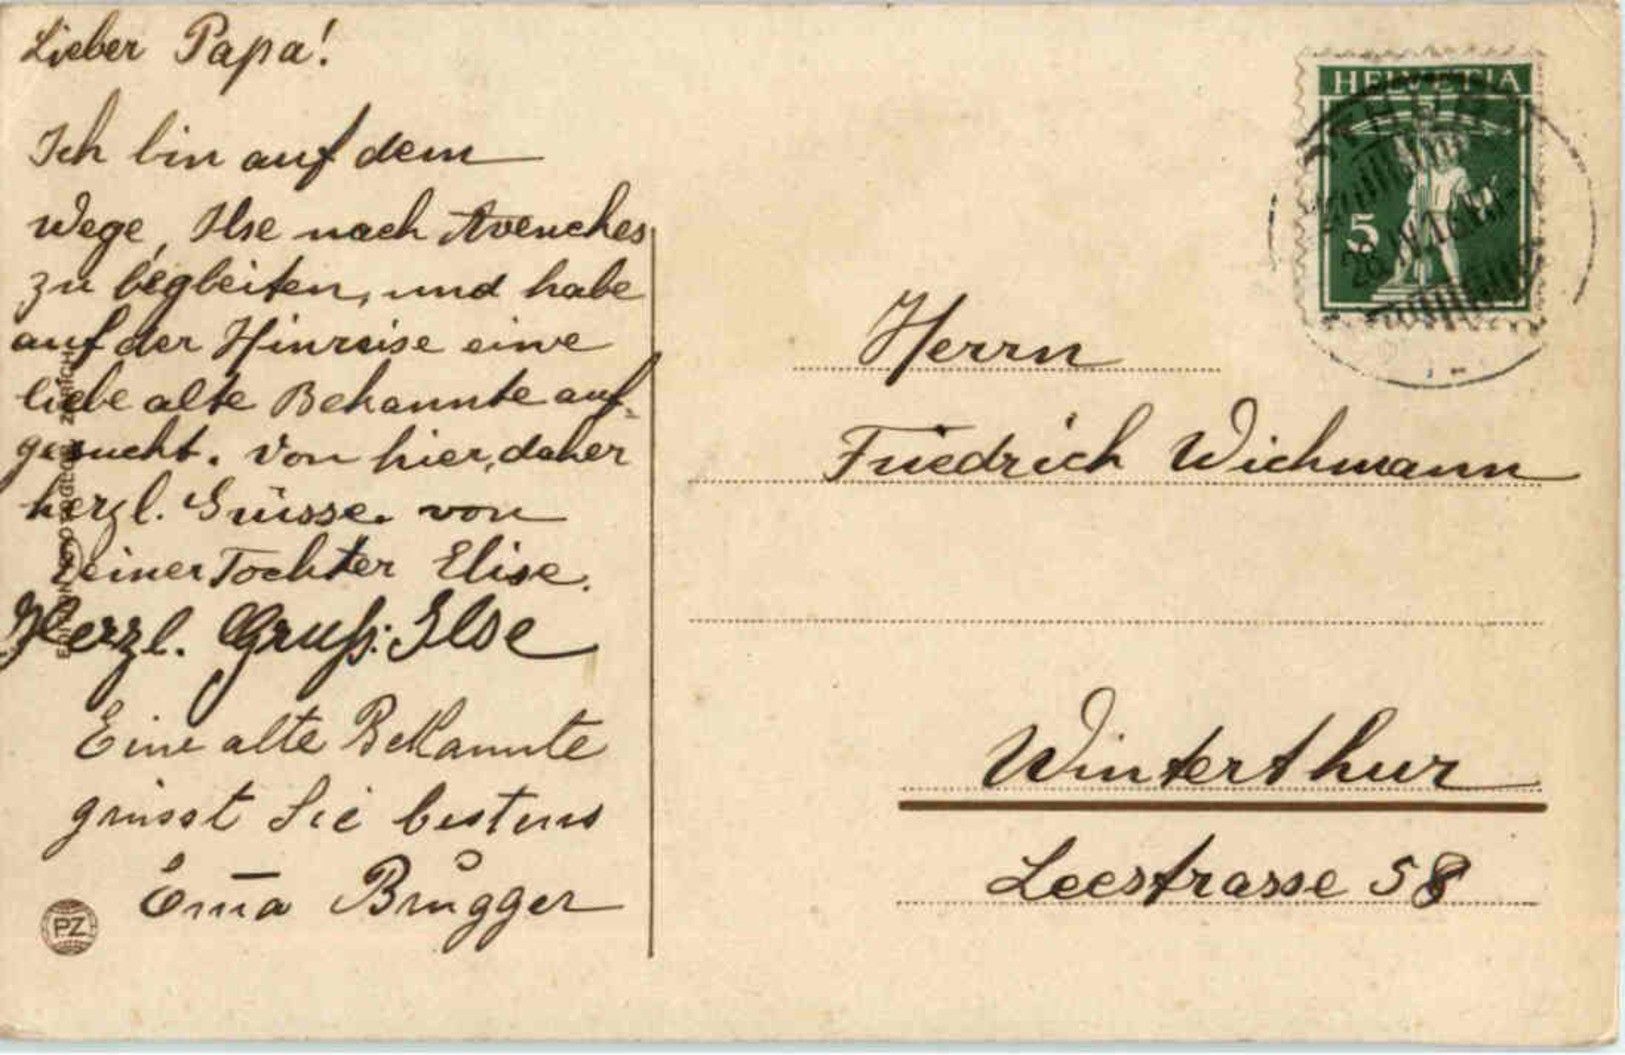 Lieber Papa!
Ich bin auf dem
Wege, Ilse nach Avenches
zu begleiten, und habe
auf der Hinreise eine
liebe alte Bekannte auf-
gesucht. Von hier, daher
herzl. Grüsse. von
Deiner Tochter Elise.
Herzl. Gruß: Ilse
Eine alte Bekannte
grüsst Sie bestens
Em̅a Brugger
PZ
HELVETIA
5
Herrn
Friedrich Wichmann
Winterthur
Leestrasse 58